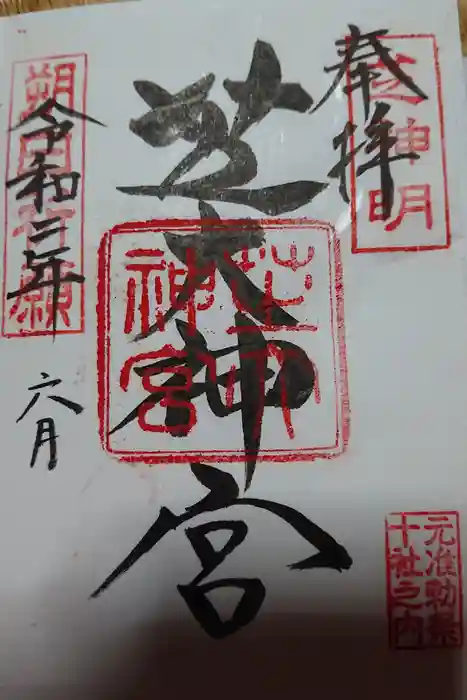 奉拝
芝神明
芝大神宮
芝大
神宮
令和三年
六月
朔日祈願
元准勅祭
十社之内